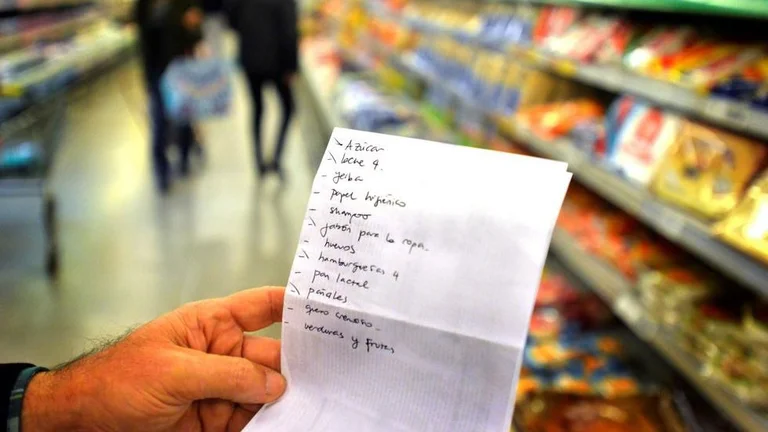 Azúcar
leche 4.
yerba
papel higiénico
shampoo
jabón para la ropa.
huevos
hamburguesas 4
pan lactal
pañales
queso cremoso.
verduras y frutas